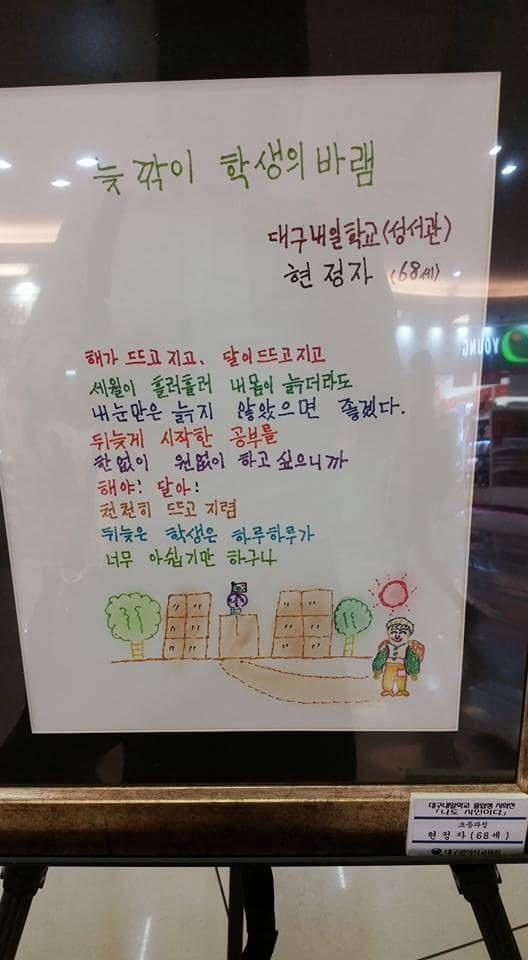 늦깎이 학생의 바램
대구내일학교(성서관)
현정자 (68세)
해가 뜨고 지고, 달이 뜨고 지고
세월이 흘러흘러 내몸이 늙더라도
내눈만은 늙지 않았으면 좋겠다.
뒤늦게 시작한 공부를
한없이 원없이 하고 싶으니까
해야! 달아!
천천히 뜨고 지렴
뒤늦은 학생은 하루하루가
너무 아쉽기만 하구나
YOUNG
대구내일학교 졸업생 시화전
「나도 시인이다」
초등과정
현정자(68세)
대구광역시교육청